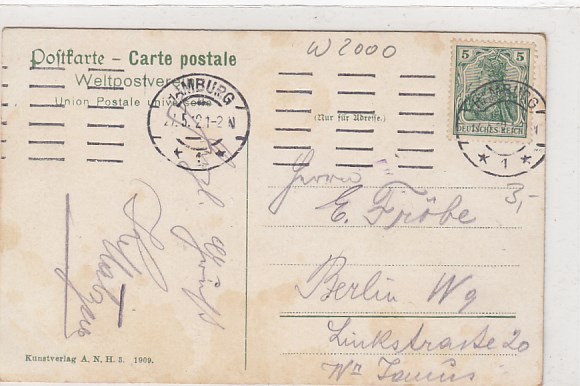 W 2000
Postkarte – Carte postale
Weltpostverein
Union Postale universelle
(Nur für Adresse.)
5
DEUTSCHES REICH
HAMBURG
5.12.1-2 N
1
HAMBURG
1
3,-
Gruß
Herrn
E. Fröbe
Berlin W9
Linkstrasse 20
Kunstverlag A. N. H. 3. 1909.